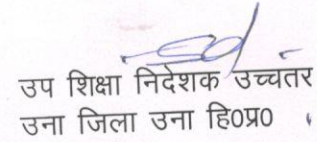 उप शिक्षा निदेशक उच्चतर
उना जिला उना हि0प्र0